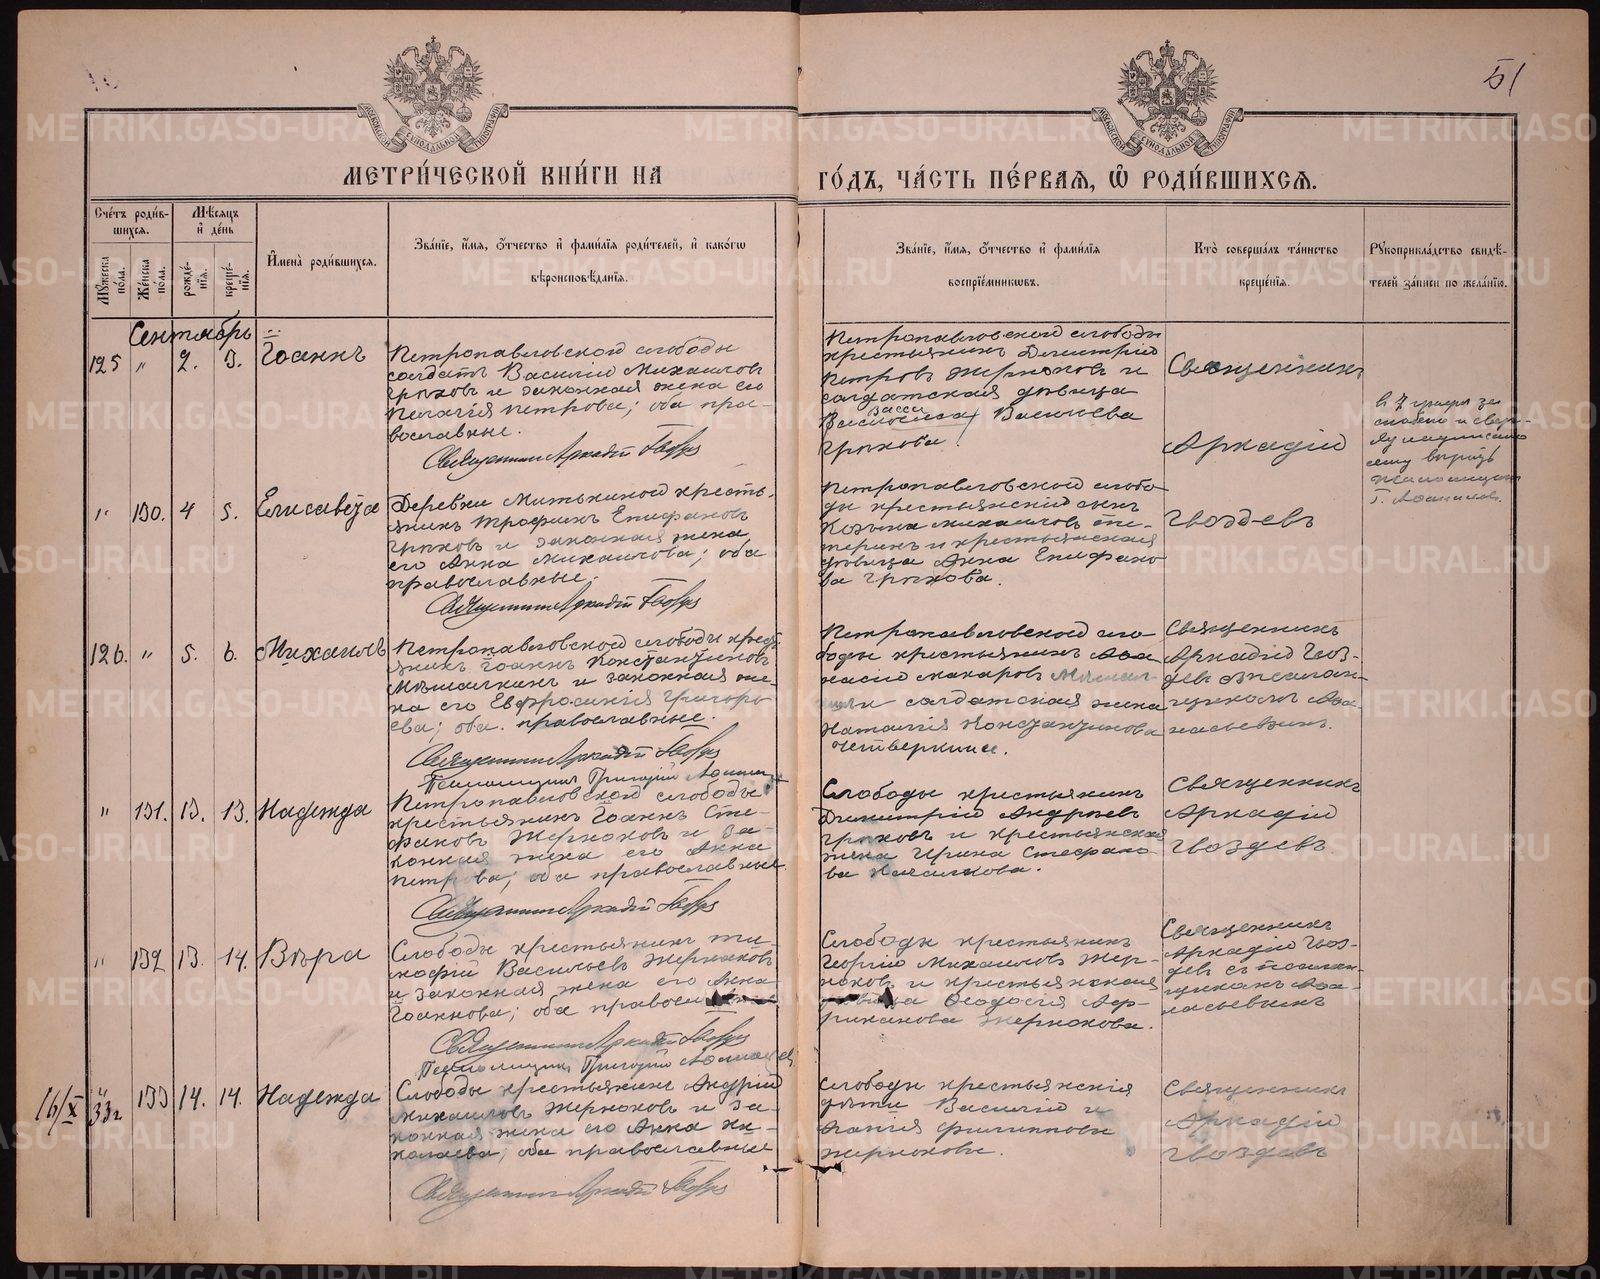 51
МЕТРИ́ЧЕСКОЙ КНИ́ГИ НА
ГО́ДЪ, ЧА́СТЬ ПЕ́РВАЯ, Ѡ҆ РОДИ́ВШИХСЯ.
Сче́тъ роди́в-
шихся.
Мѣ́сяцъ
и҆ де́нь
Мꙋ́жеска по́ла.
Же́нска по́ла.
рожде́-
нїя.
креще́-
нїя.
И҆мена̀ роди́вшихся.
Зва́нїе, и҆́мя, ѻ҆́тчество и҆ фами́лїя роди́телей, и҆ како́гѡ
вѣроисповѣ́данїя.
Зва́нїе, и҆́мя, ѻ҆́тчество и҆ фами́лїя
воспрїе́мниковъ.
Кто̀ соверша́лъ та́инство
креще́нїя.
Рꙋкоприкла́дство свидѣ́-
телей за́писи по жела́нїю.
Сентябрь
125 " 2. 3. Іоаннъ
Петропавловской слободы
солдатъ Василій Михаиловъ
Грѣховъ и законная жена его
Пелагія Петрова; оба пра-
вославные.
Священникъ Аркадій Гвоздевъ
Петропавловской слободы
крестьянинъ Димитрій
Петровъ Жернаковъ и
солдатская дѣвица
Васса
Васильева
Грѣхова.
Священникъ
Аркадій
Гвоздевъ
" 130. 4 5. Елисавета
Деревни Митькиной кресть-
янинъ Трофимъ Епифановъ
Грѣховъ и законная жена
его Анна Михаилова; оба
православные.
Священникъ Аркадій Гвоздевъ
Петропавловской слобо-
ды крестьянскій сынъ
Козьма Михаиловъ
и крестьянская
дѣвица Анна Епифано-
ва Грѣхова.
126. " 5. 6. Михаилъ
Петропавловской слободы крест-
янинъ Іоаннъ Константиновъ
и законная же-
на его Евфросинія Григорь-
ева; оба православные.
Священникъ Аркадій Гвоздевъ
Псаломщикъ Григорій
Петропавловской сло-
боды крестьянинъ Аѳа-
насій Макаровъ
и солдатская жена
Наталія Константинова
Четверкина.
Священникъ
Аркадій Гвоз-
девъ съ псалом-
щикомъ Аѳа-
насьевымъ.
" 131. 13. 13. Надежда
Петропавловской слободы
крестьянинъ Іоаннъ Сте-
фановъ Жернаковъ и за-
конная жена его Анна
Петрова; оба православные.
Священникъ Аркадій Гвоздевъ
Слободы крестьянинъ
Димитрій Андреевъ
Грѣховъ и крестьянская
жена Ирина Стефано-
ва
Священникъ
Аркадій
Гвоздевъ
" 132 13. 14. Вѣра
Слободы крестьянинъ Ти-
мофій Васильевъ Жернаковъ
и законная жена его Анна
Іоаннова; оба православные
Священникъ Аркадій Гвоздевъ
Псаломщикъ Григорій
Слободы крестьянинъ
Георгій Михаиловъ Жер-
наковъ и крестьянская
дѣвица Ѳеодосія Аф-
риканова Жернакова.
Священникъ
Аркадій Гвоз-
девъ съ псалом-
щикомъ Аѳа-
насьевымъ
16/X 33г " 133 14. 14. Надежда
Слободы крестьянинъ Андрей
Михаиловъ Жернаковъ и за-
конная жена его Анна Ни-
колаева; оба православные
Священникъ Аркадій Гвоздевъ
Слободы крестьянскія
дѣти Василій и
Агапія Филипповы
Жернаковы.
Священникъ
Аркадій
Гвоздевъ
METRIKI.GASO-URAL.RU